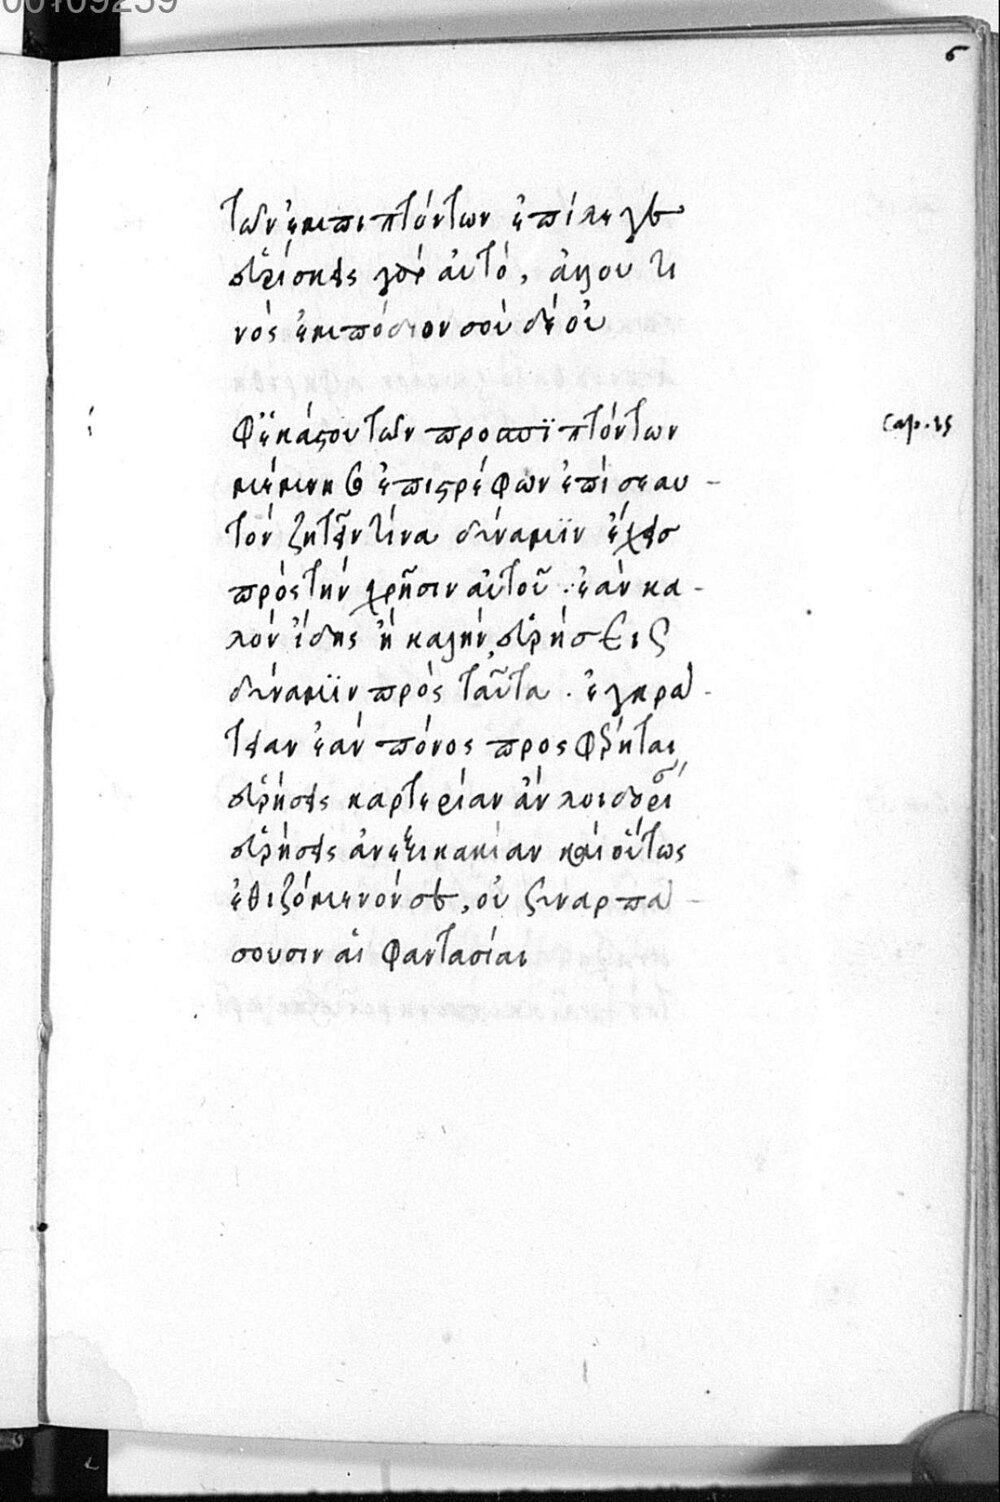 00109259
6
τῶν ἐμπιπτόντων ἐπίλεγε
εὑρίσκεις γὰρ αὐτό, ἄλλου τι
νός ἐμπόδιον σοὺ δὲ οὐ
Ἐφ' ἑκάστου τῶν προσπϊπτόντων
Cap. 15
μέμνησο ἐπιστρέφων ἐπί σεαυ -
τόν ζητεῖν τίνα δύναμϊν ἔχεισ
πρός τήν χρῆσιν αὐτοῦ · ἐάν κα -
λόν ἴδης ἢ καλήν, εὑρήσεις
δύναμϊν πρός ταῦτα · ἐγκρά -
τειαν ἐάν πόνος προσφέρηται
εὑρήσεις καρτερίαν ἄν λοιδορία
εὑρήσεις ἀνεξικακίαν καί οὕτως
ἐθιζόμενόν σε, οὐ ξυναρπά -
σουσιν αἱ φαντασίαι